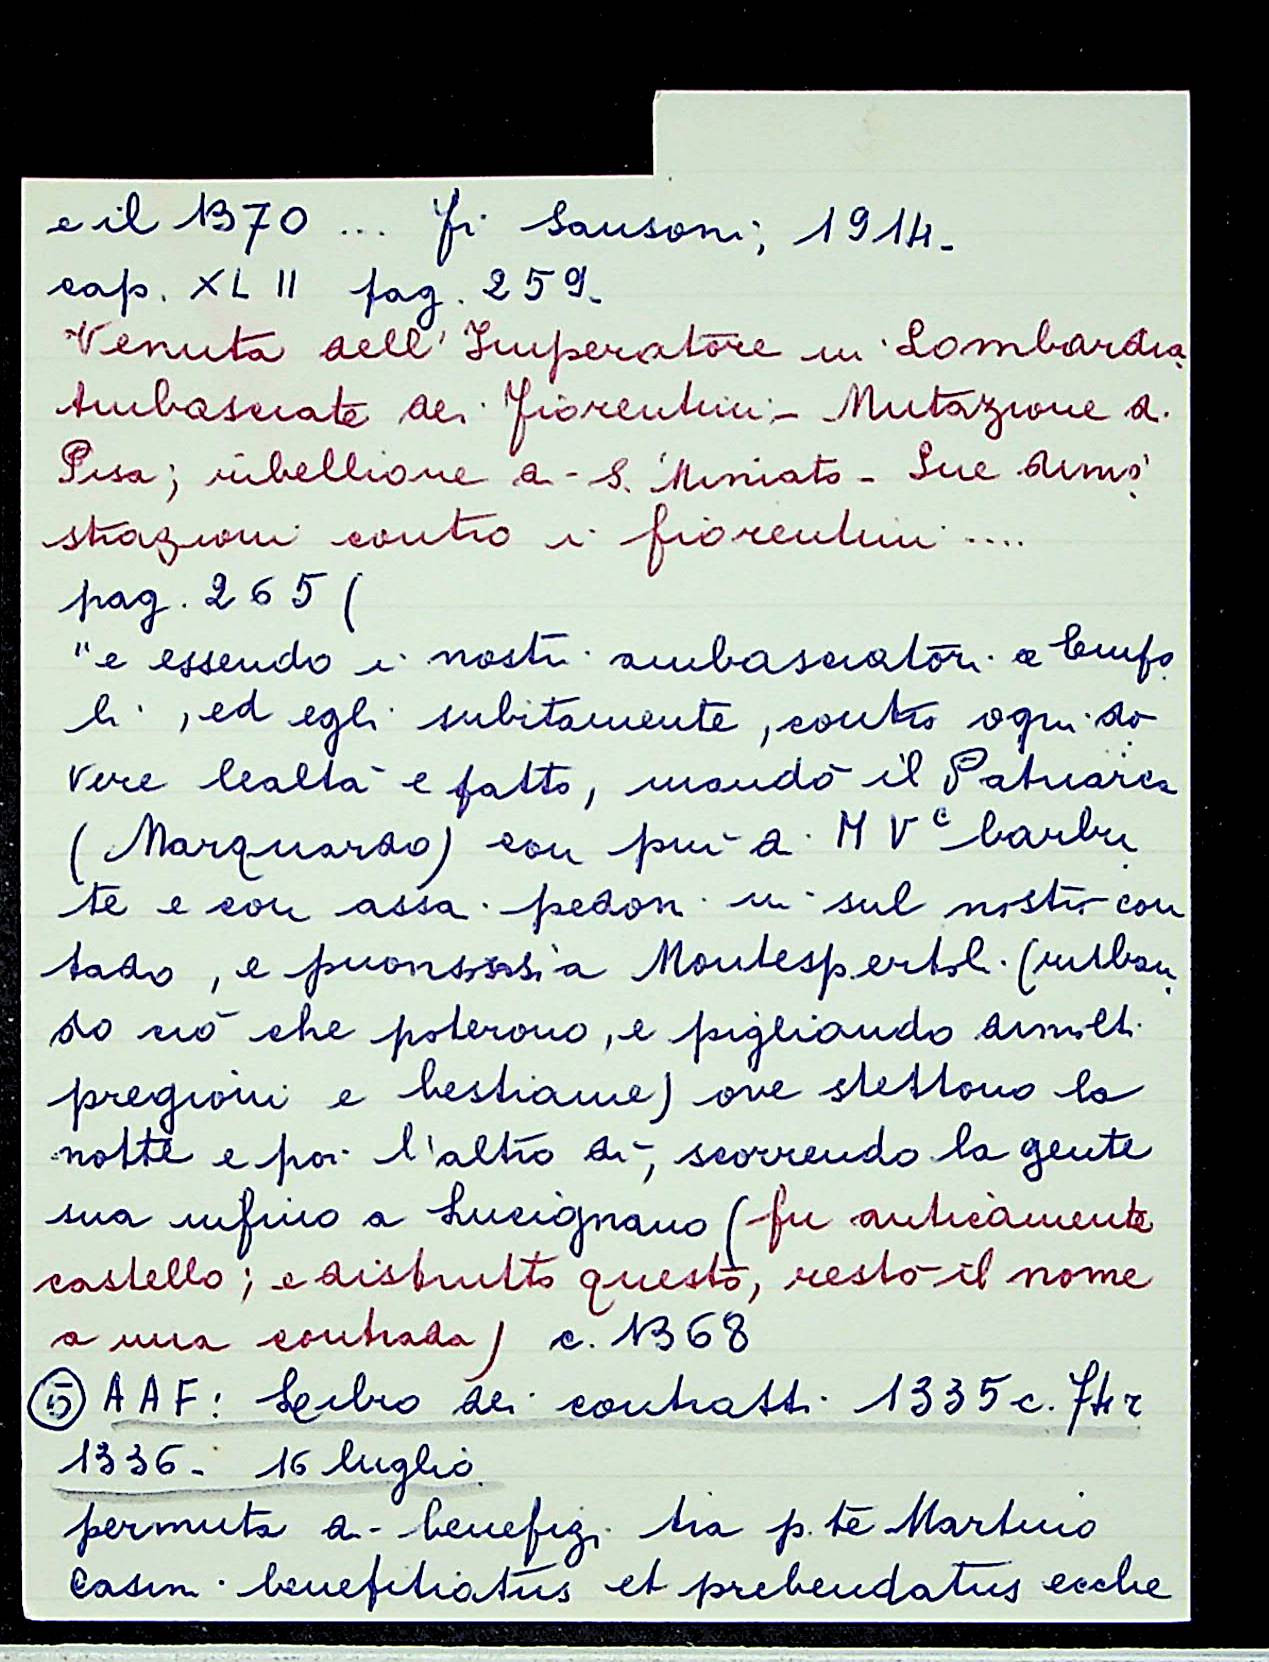 e il 1370 ... Fi Sansoni, 1914.
cap. XLII pag. 259.
Venuta dell'Imperatore in Lombardia,
Ambasciate dei Fiorentini - Mutazione di
Pisa; ribellione di S. Miniato - Sue dimo
strazioni contro i fiorentini ....
pag. 265 (
"e essendo i nostri ambasciatori a Empo
li, ed egli subitamente, contro ogni do
vere lealtà e fatto, mandò il Patriarca
(Marquardo) con più di MVc barbu
te e con assai pedoni in sul nostro con
tado, e puonsesi a Montespertoli (rubban
do ciò che poterono, e pigliando di molti
pregioni e bestiame) ove stettono la
notte e poi l'altro dì, scorrendo la gente
sua infino a Lucignano (fu anticamente
castello; e distrutto questo, restò il nome
a una contrada) c. 1368
5 AAF: Libro dei contratti 1335 c. 74r
1336 - 16 luglio
permuta di benefizi tra p.te Martino
Casini benefitiatus et prebendatus ecche